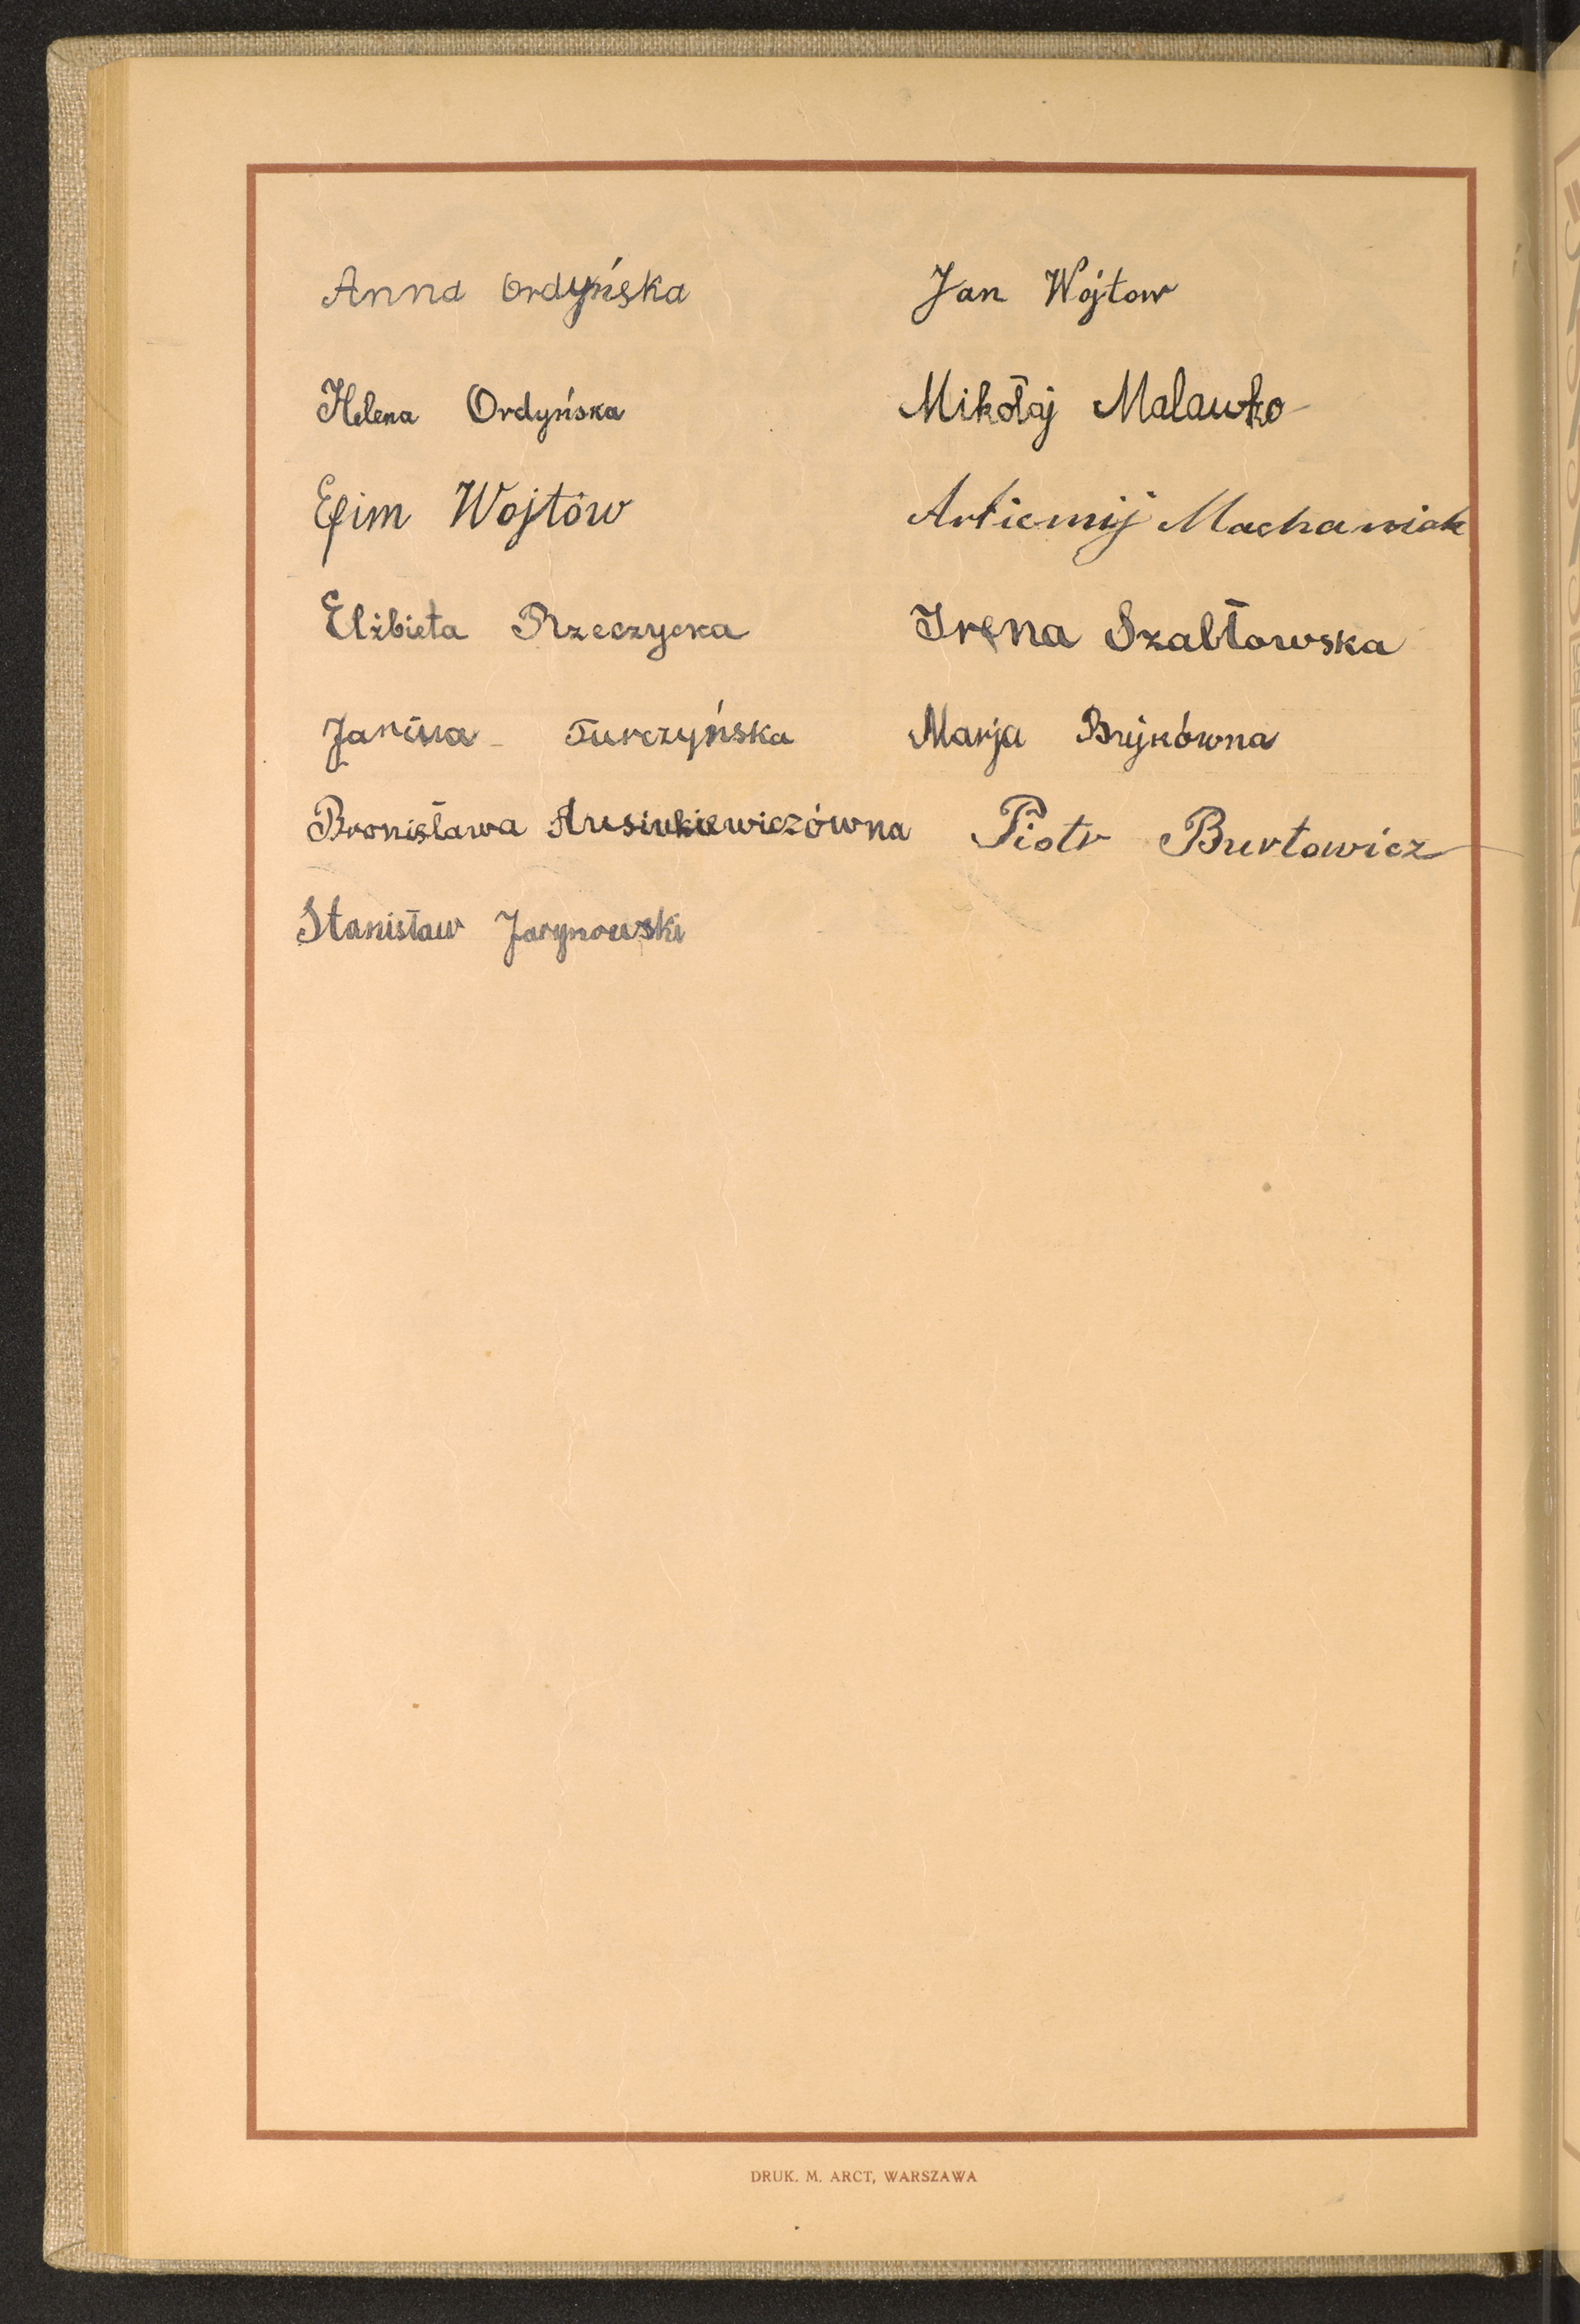 Anna Ordyńska
Helena Ordyńska
Efim Wojtów
Elżbieta Rzeczycka
Janina Turczyńska
Bronisława
Stanisław Jarynowski
Jan Wójtow
Mikołaj Malawko
Artiemij Machawiak
Irena Szabłowska
Marja Bujkówna
Piotr Burtowicz
DRUK. M. ARCT, WARSZAWA